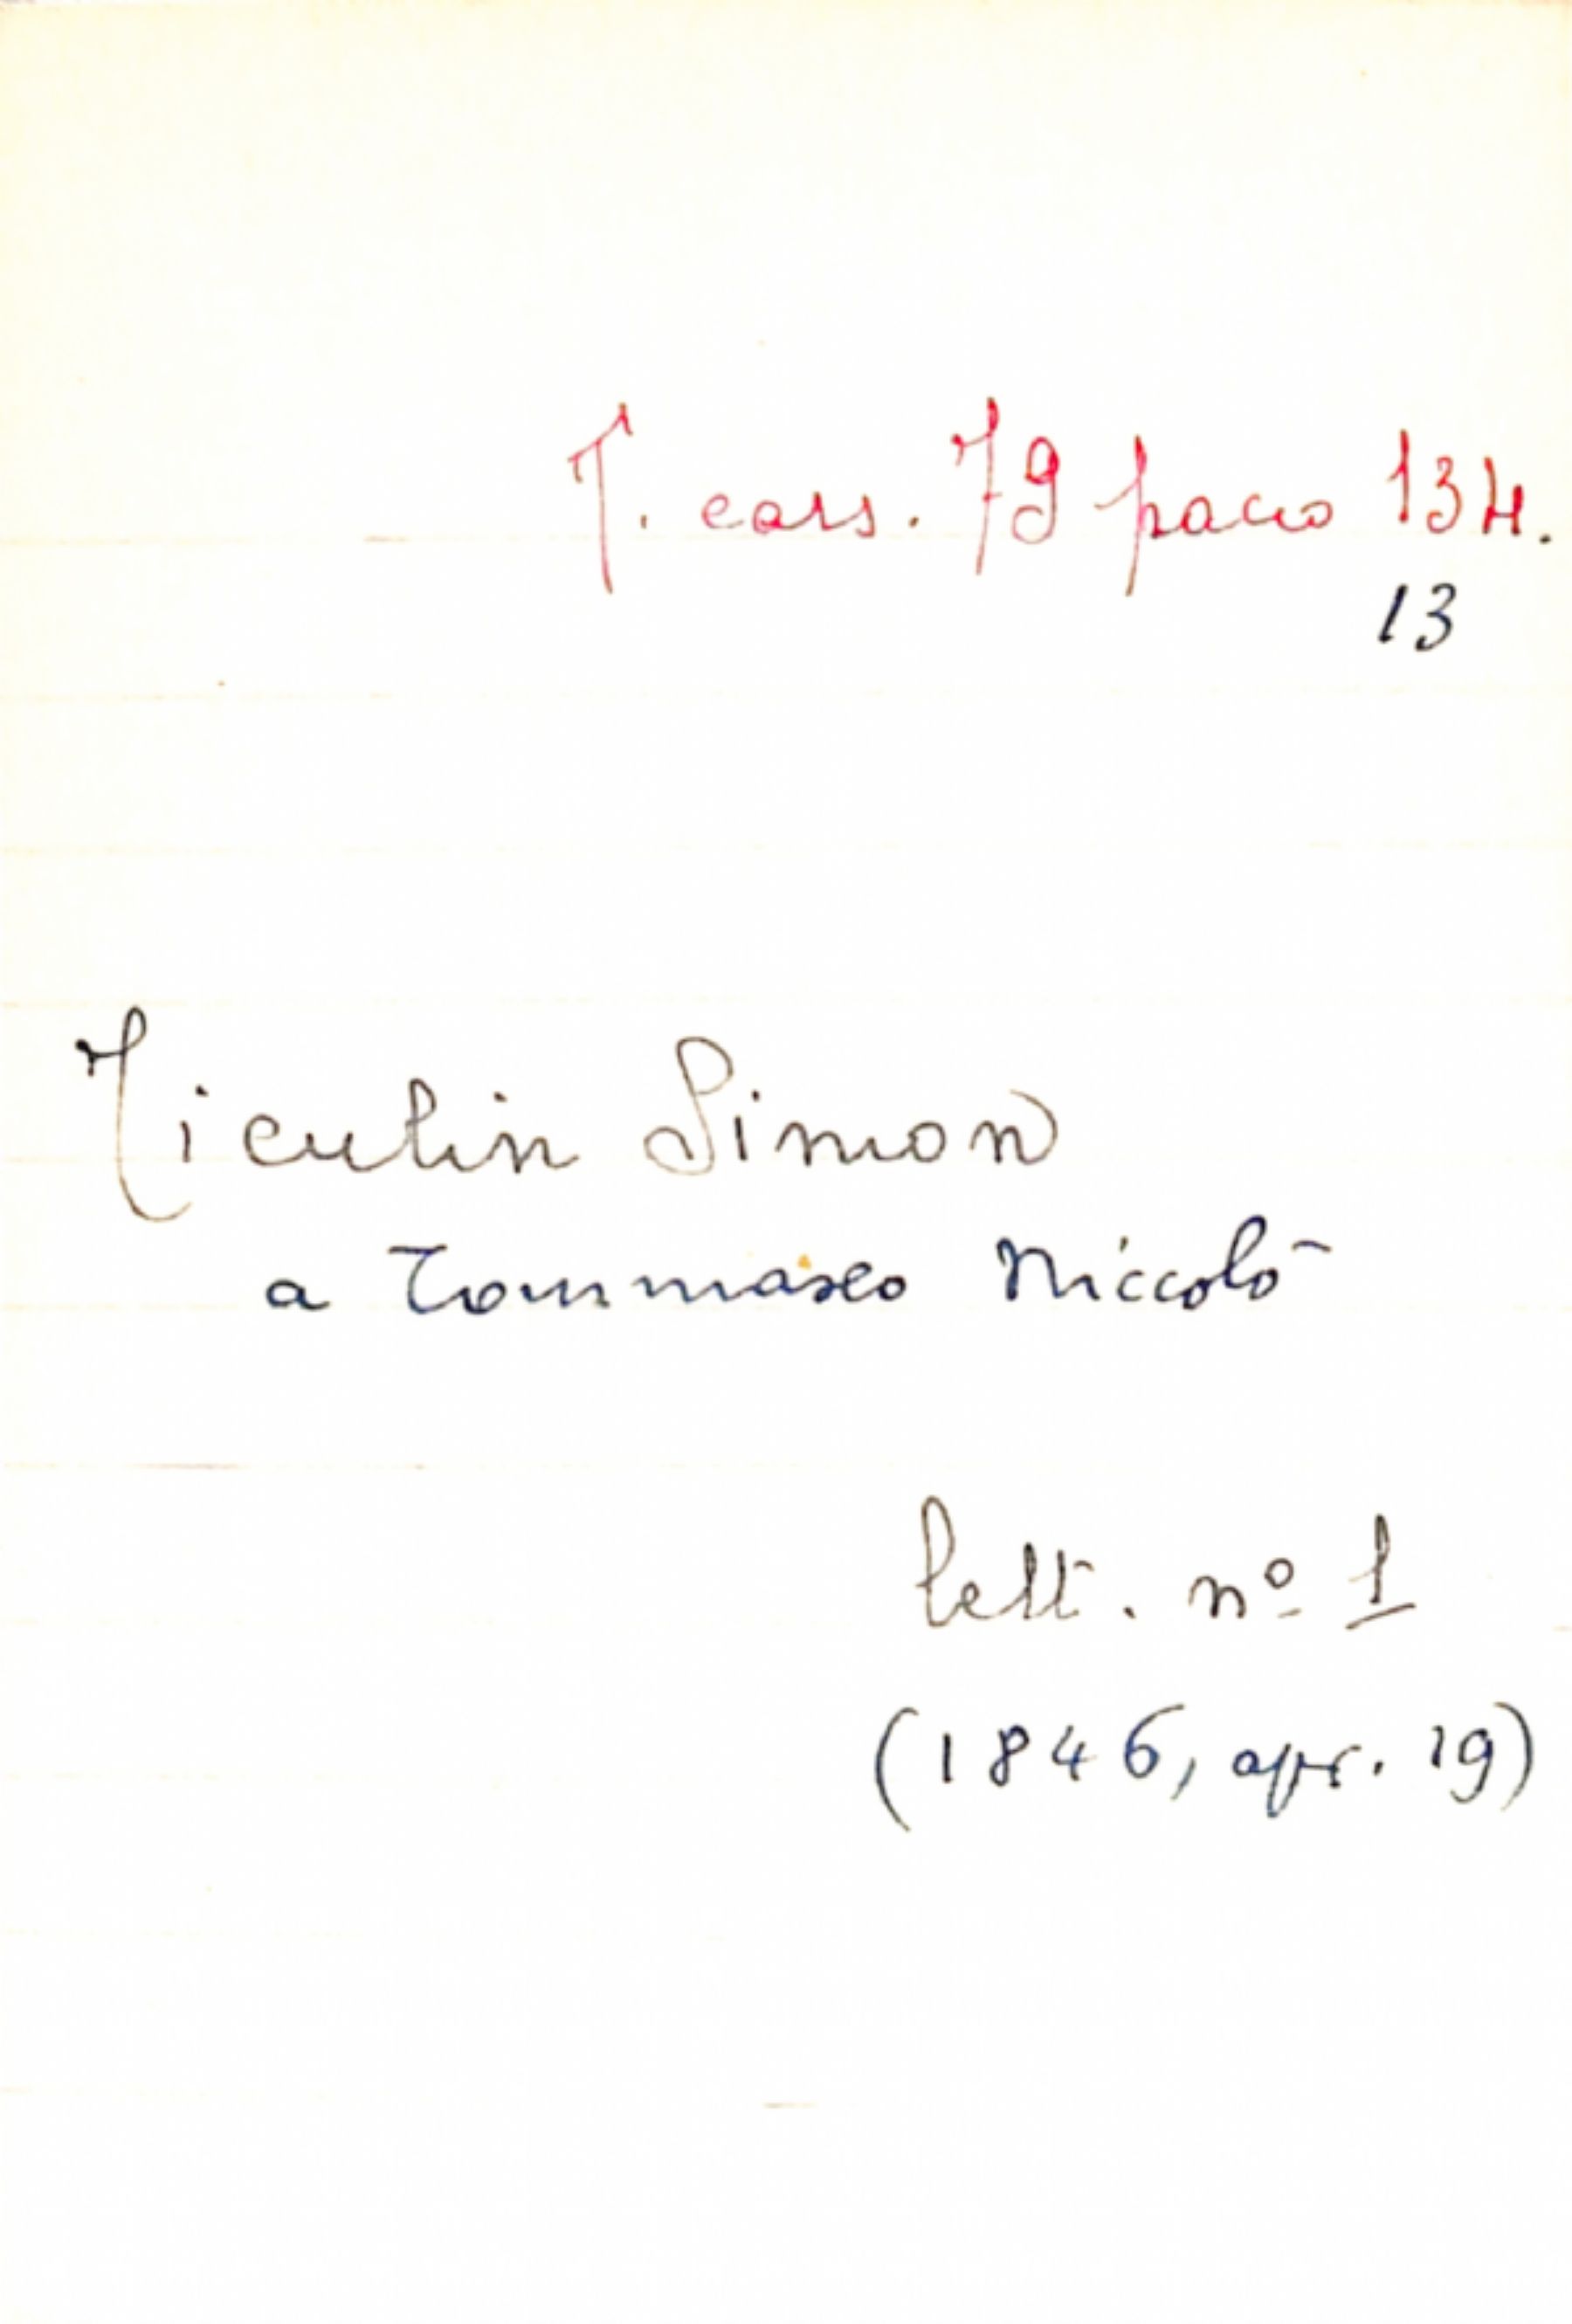 T. cass. 79 pacco 134.
13
Ticulin Simon
a Tommaseo Niccolò
lett. nº 1
(1846, apr. 19)